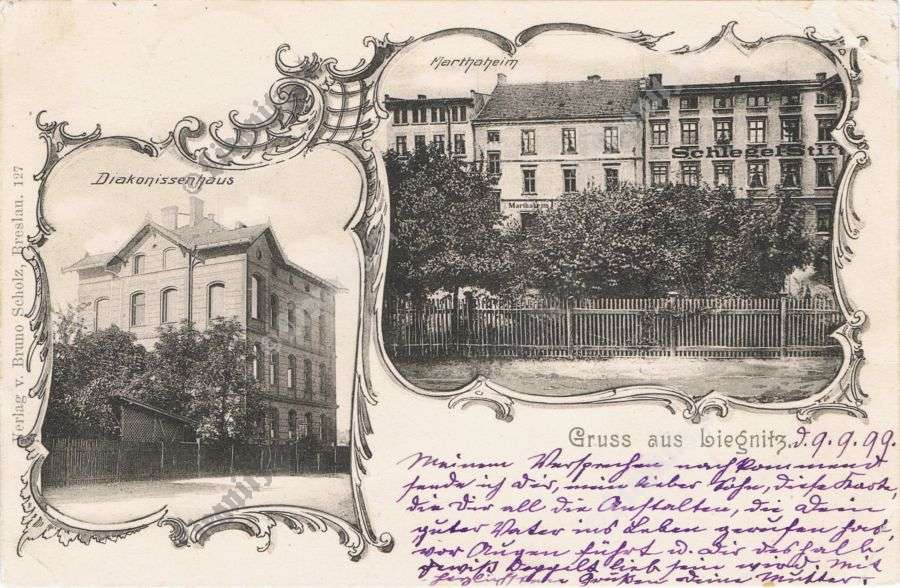 Marthaheim
Diakonissenhaus
Schlegel-Stift
Marthaheim
Verlag v. Bruno Scholz, Breslau. 127
Gruss aus Liegnitz, d. 9. 9. 99.
Meinem Versprechen nachkommend
sende ich Dir, mein lieber Sohn, diese Karte,
die Dir all die Anstalten, die Dein
guter Vater ins Leben gerufen hat,
vor Augen führt u. Dir deshalb
gewiß doppelt lieb sein wird. Mit
herzlichsten Grüßen deine Mutter.